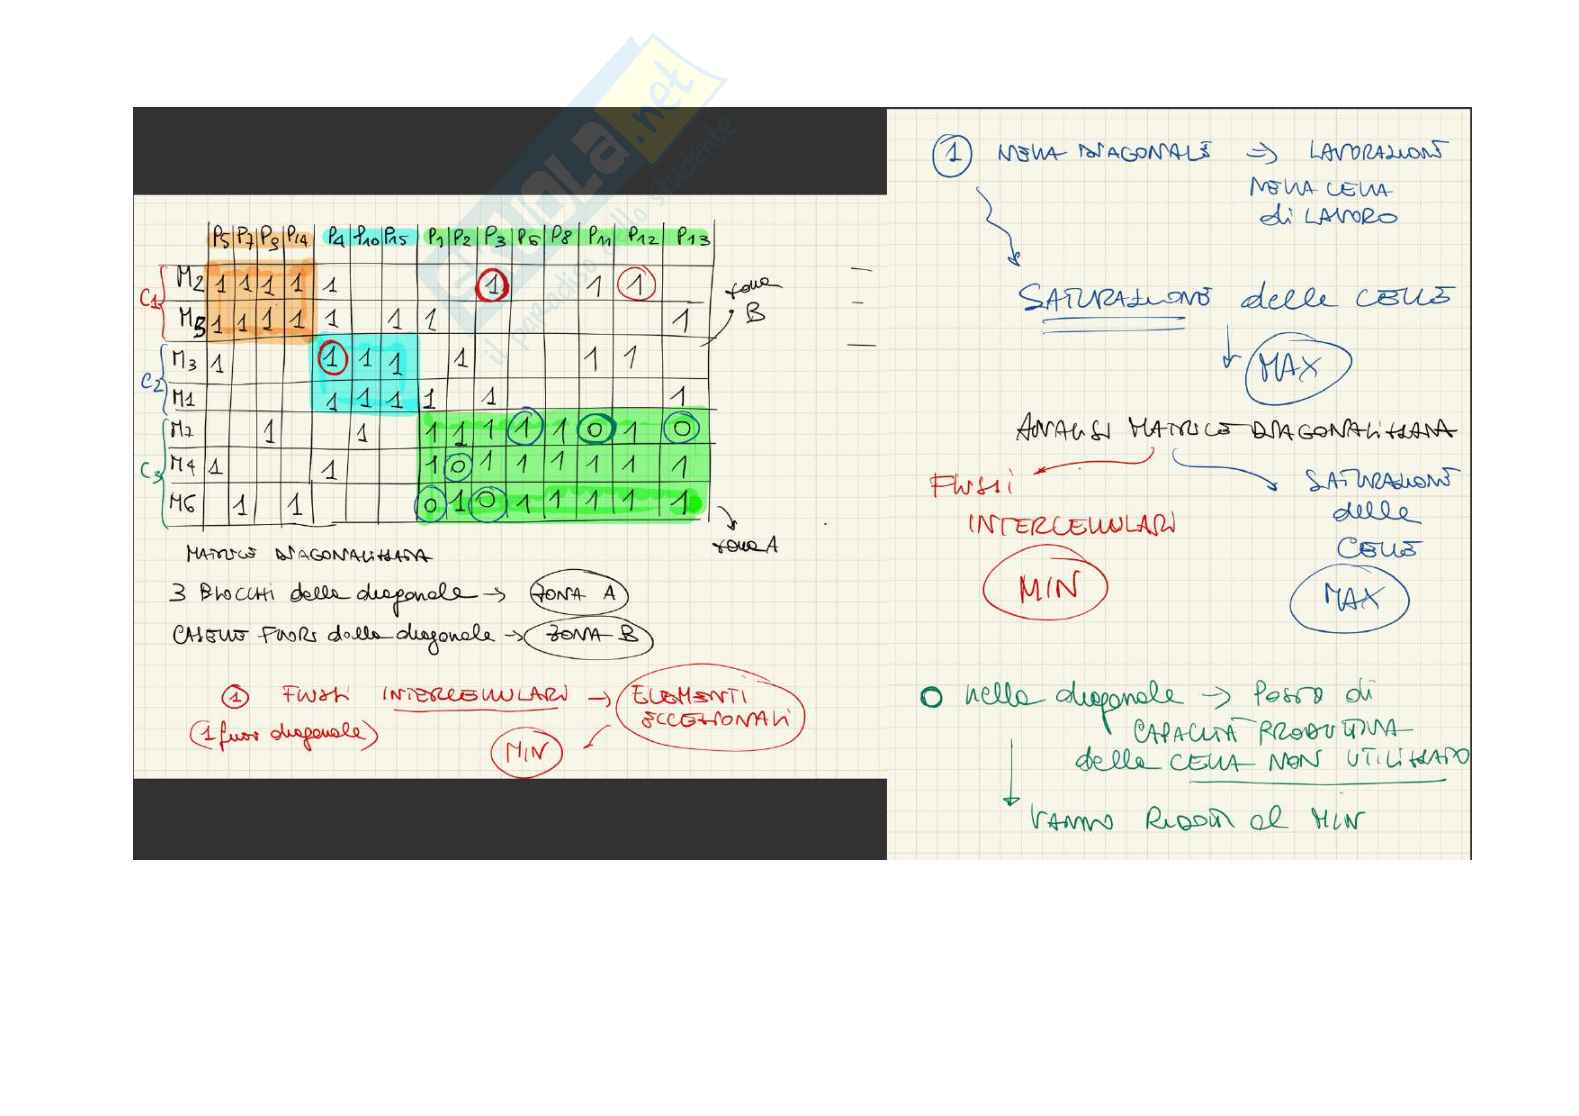 P5 P7 P9 P14 P4 P10 P15 P1 P2 P3 P6 P8 P11 P12 P13
C1
M2 1 1 1 1 1 1 1 1
M5 1 1 1 1 1 1 1 1
C2
M3 1 1 1 1 1 1 1
M1 1 1 1 1 1 1
C3
M7 1 1 1 1 1 1 1 0 1 0
M4 1 1 1 0 1 1 1 1 1 1
M6 1 1 0 1 0 1 1 1 1 1
zona B
zona A
MATRICE DIAGONALIZZATA
3 BLOCCHI della diagonale → ZONA A
CASELLE FUORI dalla diagonale → ZONA B
1 FLUSSI INTERCELLULARI → ELEMENTI ECCEZIONALI
(1 fuori diagonale)
MIN
1 NELLA DIAGONALE ⇒ LAVORAZIONI
NELLA CELLA
di LAVORO
SATURAZIONE delle CELLE
MAX
ANALISI MATRICE DIAGONALIZZATA
FLUSSI
INTERCELLULARI
MIN
SATURAZIONE
delle
CELLE
MAX
0 nella diagonale → Posto di
CAPACITÀ PRODUTTIVA
della CELLA NON UTILIZZATO
VANNO RIDOTTI al MIN
SKUOLA.net
il paradiso dello studente